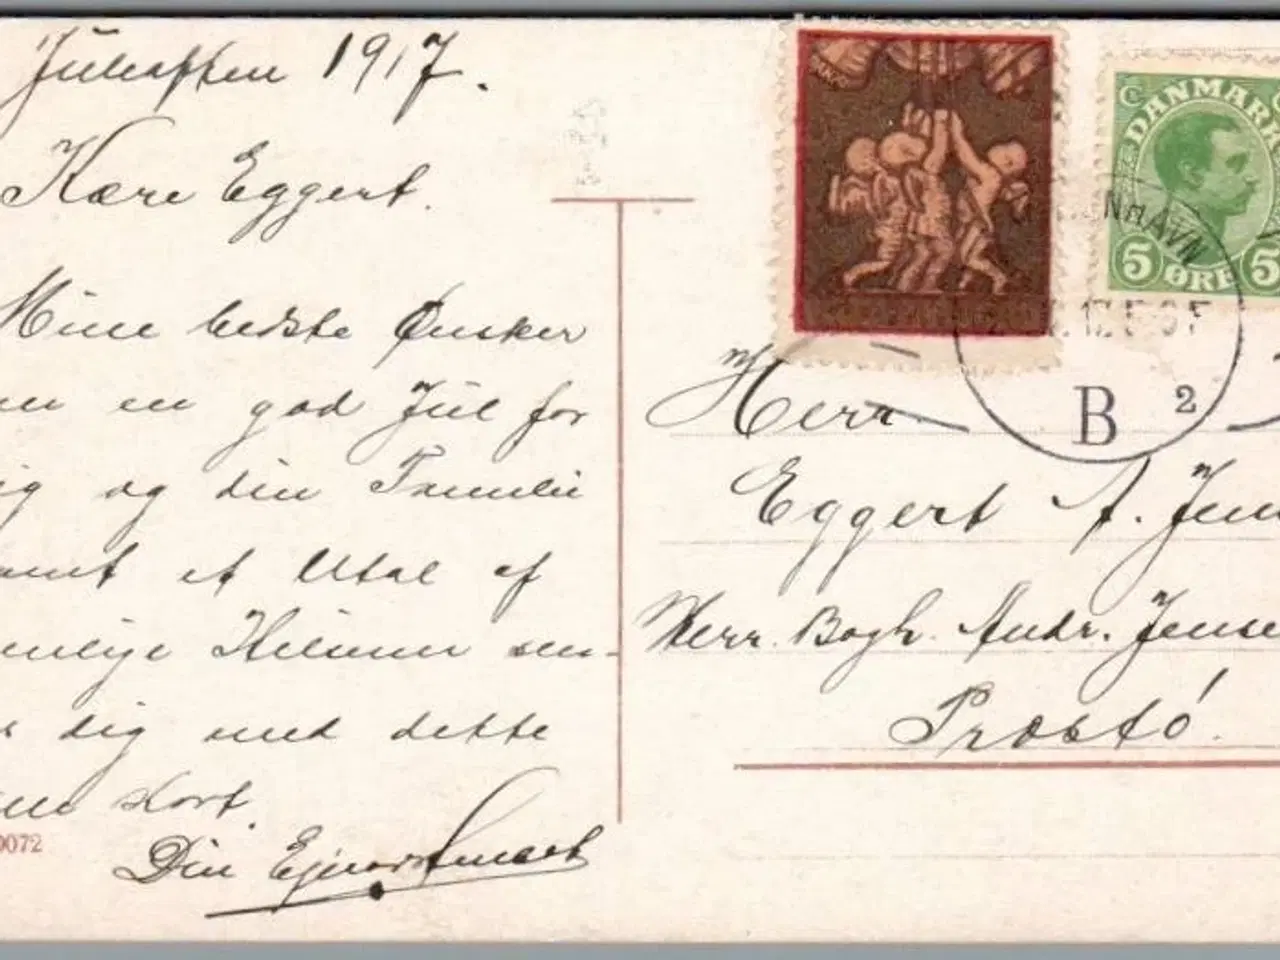 Juleaften 1917.
Kære Eggert.
Mine bedste Ønsker
en god Jul for
og din Familie
et Utal af
Hilsener sen-
dig med dette
Kort.
Din Ejnar
0072
DANMARK
5 ØRE 5
NHAVN
B 2
Herr
Eggert A. Jen
Herr. Bogh. Andr. Jense
Præstø.